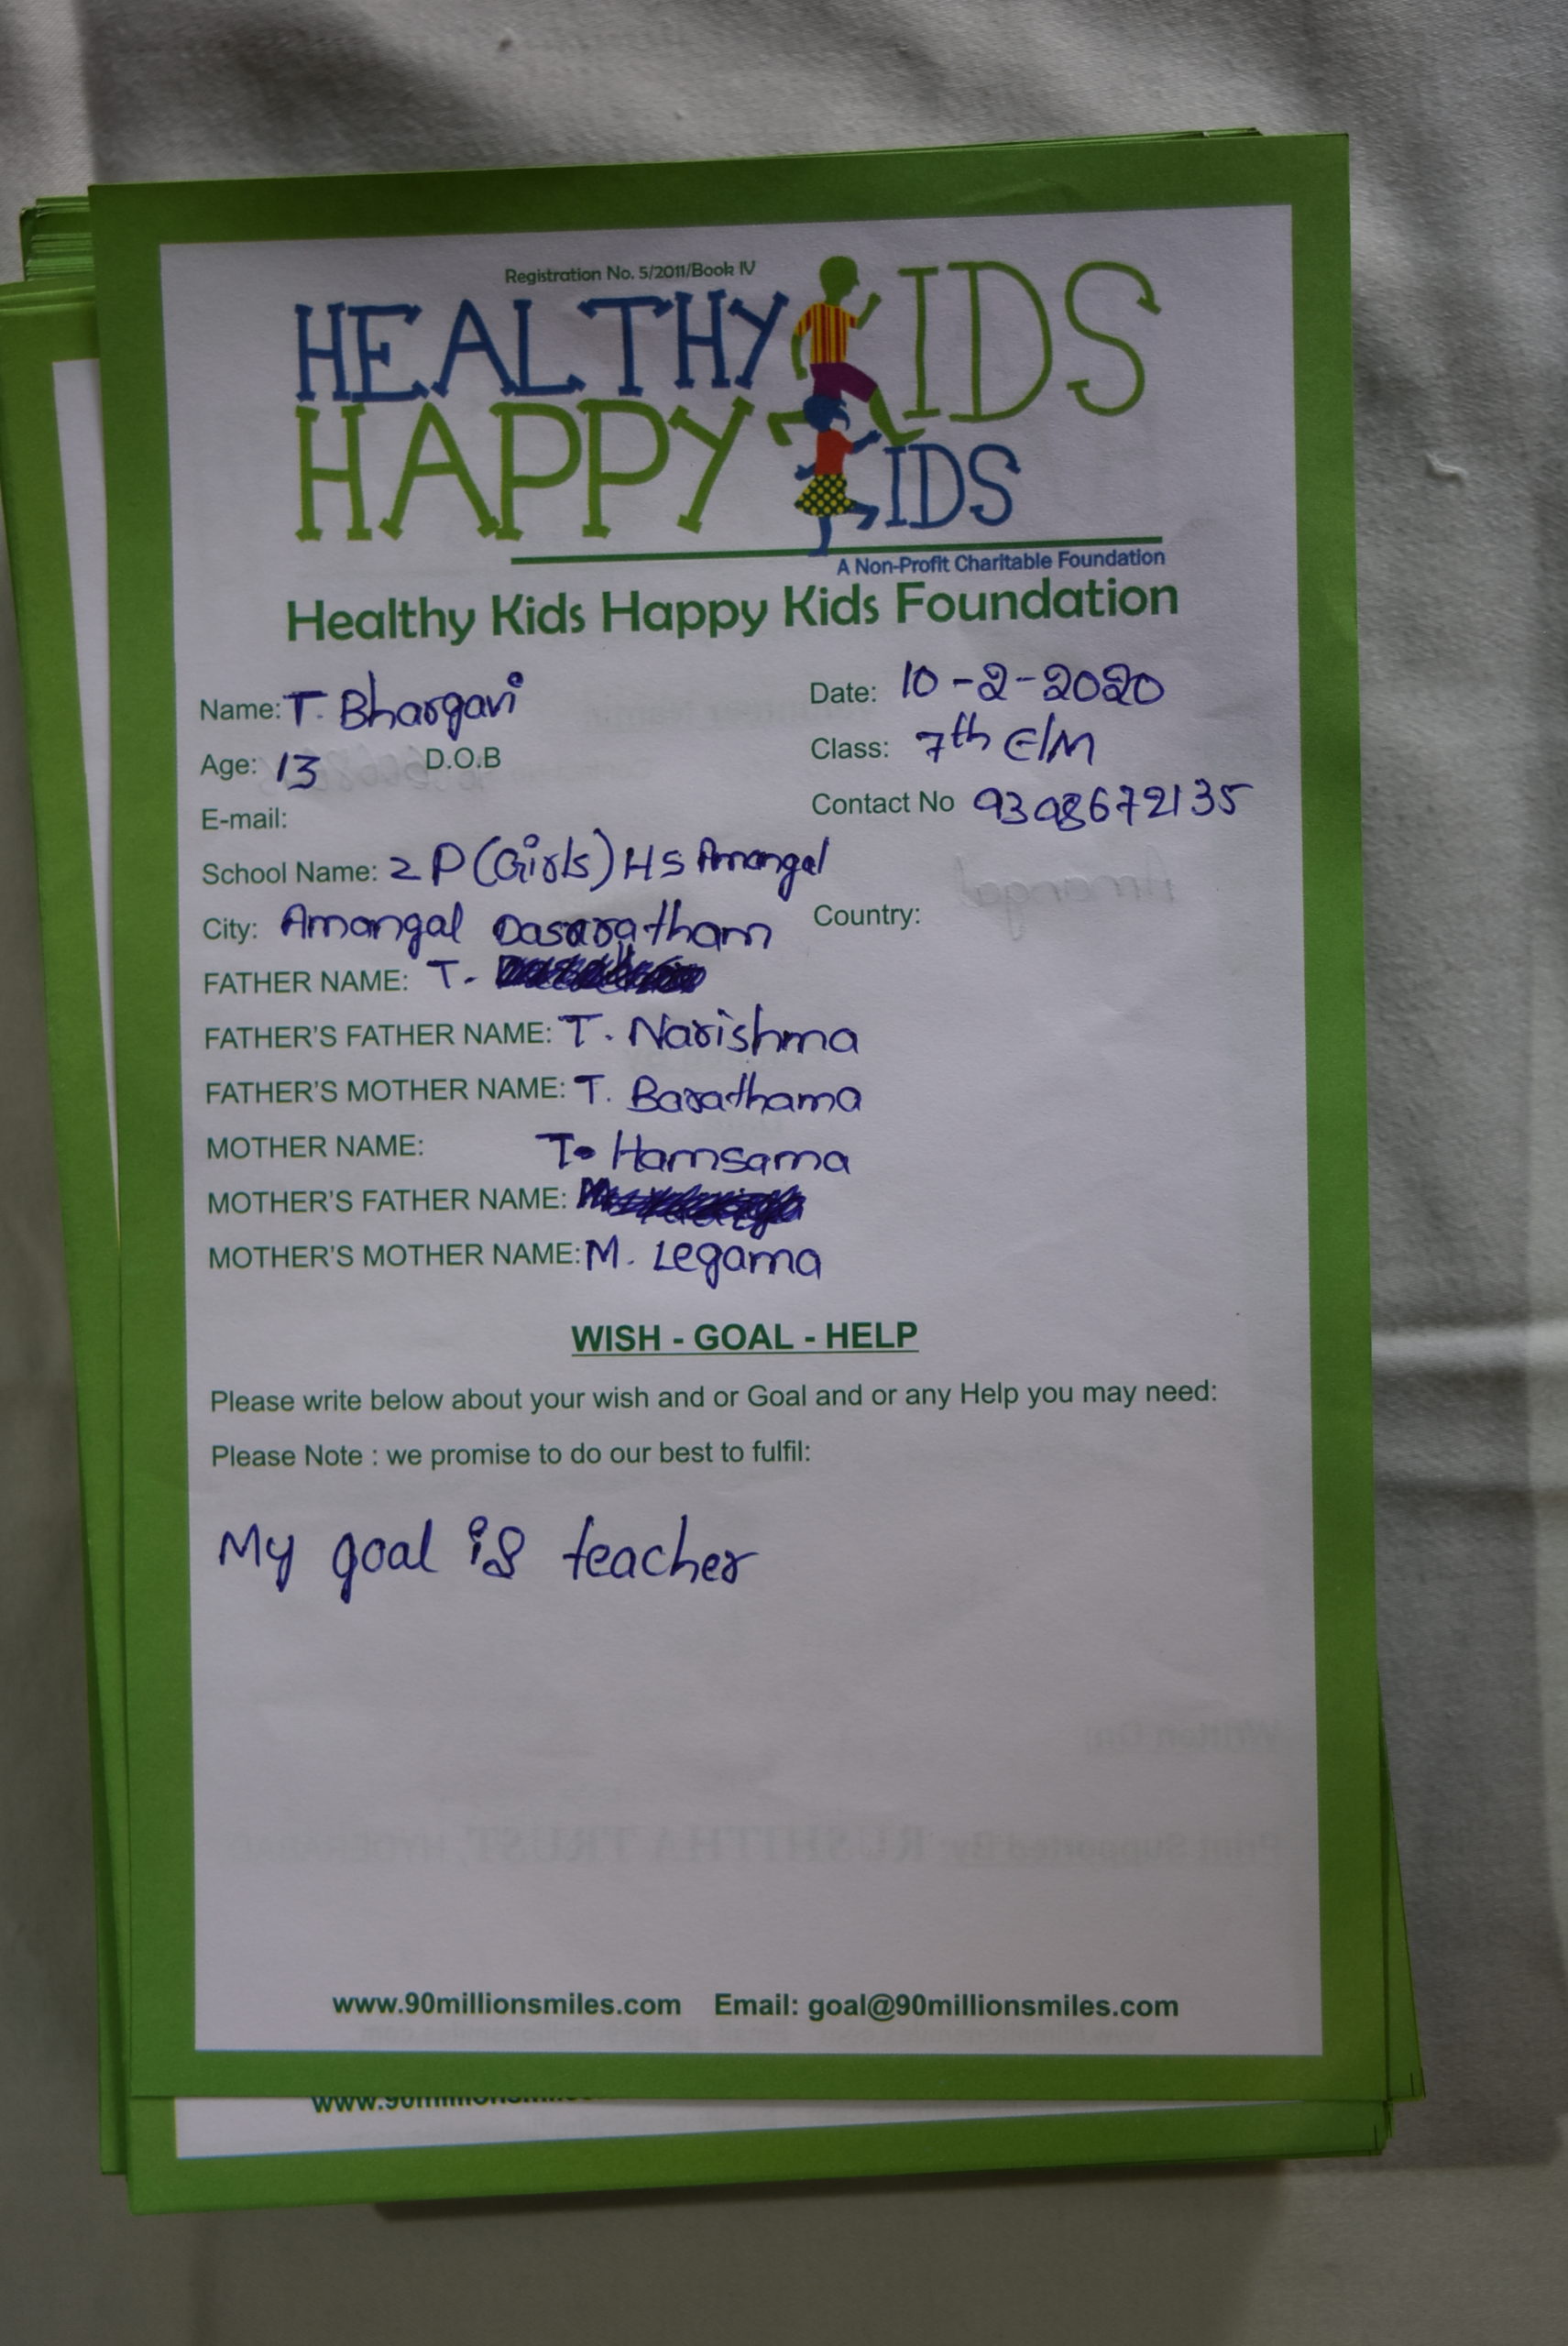 Registration No. 5/2011/Book IV
HEALTHY KIDS
HAPPY KIDS
A Non-Profit Charitable Foundation
Healthy Kids Happy Kids Foundation
Name: T. Bhargavi Date: 10-2-2020
Age: 13 D.O.B Class: 7th E/M
E-mail: Contact No 9398672135
School Name: 2 P (Girls) HS Amangal
City: Amangal Country:
Dasaratham
FATHER NAME: T.
FATHER'S FATHER NAME: T. Narishma
FATHER'S MOTHER NAME: T. Barathama
MOTHER NAME: T. Hamsama
MOTHER'S FATHER NAME:
MOTHER'S MOTHER NAME: M. Legama
WISH - GOAL - HELP
Please write below about your wish and or Goal and or any Help you may need:
Please Note : we promise to do our best to fulfil:
My goal is teacher
www.90millionsmiles.com Email: goal@90millionsmiles.com